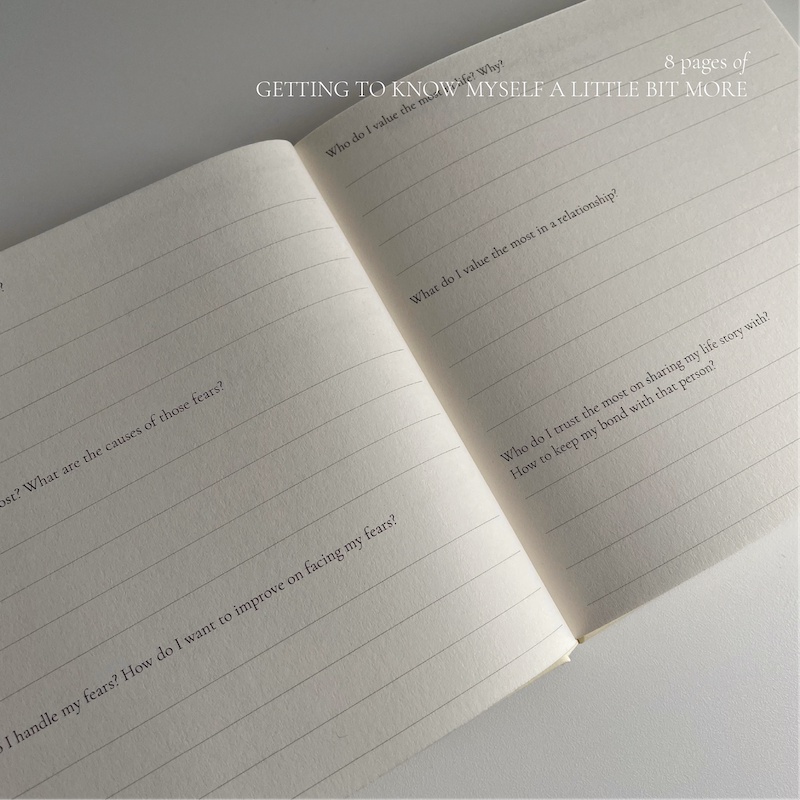 8 pages of
GETTING TO KNOW MYSELF A LITTLE BIT MORE
?
ost? What are the causes of those fears?
I handle my fears? How do I want to improve on facing my fears?
Who do I value the most life? Why?
What do I value the most in a relationship?
Who do I trust the most on sharing my life story with?
How to keep my bond with that person?